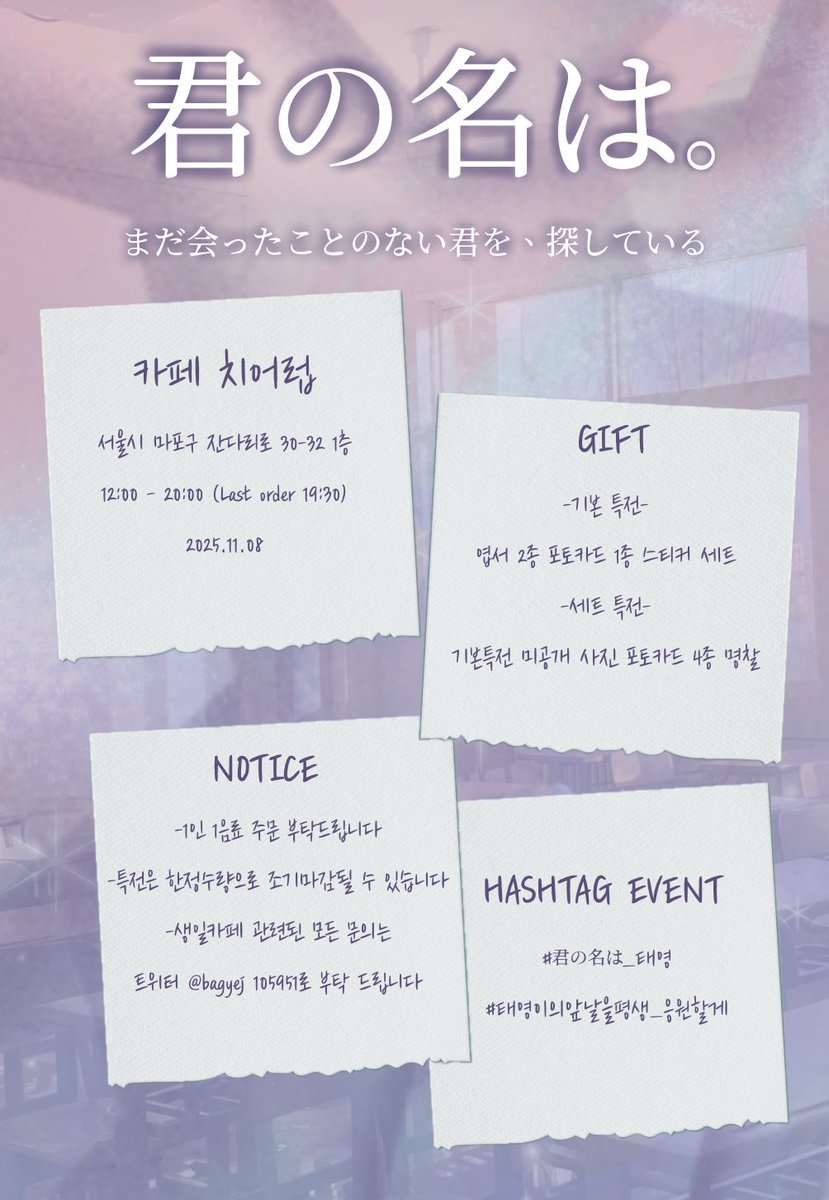 君の名は。
まだ会ったことのない君を、探している
카페 치어럽
서울시 마포구 잔다리로 30-32 1층
12:00 - 20:00 (Last order 19:30)
2025.11.08
GIFT
-기본 특전-
엽서 2종 포토카드 1종 스티커 세트
-세트 특전-
기본특전 미공개 사진 포토카드 4종 명찰
NOTICE
-1인 1음료 주문 부탁드립니다
-특전은 한정수량으로 조기마감될 수 있습니다
-생일카페 관련된 모든 문의는
트위터 @bagyej 105951로 부탁 드립니다
HASHTAG EVENT
#君の名は_태영
#태영이의앞날을평생_응원할게